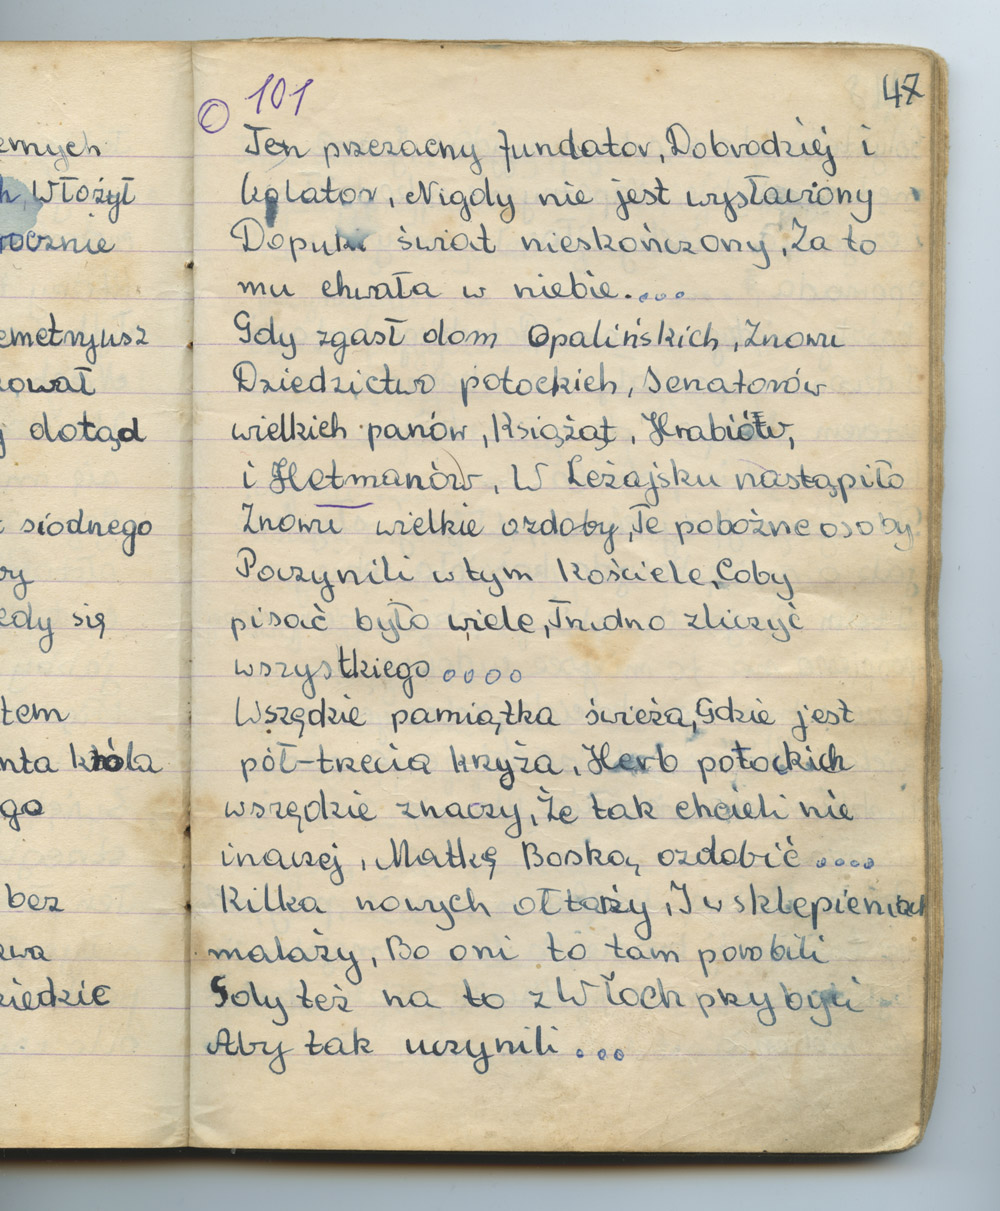 emych
h, Włożył
rocznie
emetryusz
kował
j dotąd
siódnego
ry
edy się
tem
nta króla
go
bez
wa
ziedzic
101
47
Ten przezacny fundator, Dobrodziej i
kolator, Nigdy nie jest wysławiony
Dopuki świat nieskończony, Za to
mu chwała w niebie....
Gdy zgasł dom Opalińskich, Znowu
Dziedzictwo potockich, Senatorów
wielkich panów, Książąt, Hrabiów,
i Hetmanów, W Leżajsku nastąpiło
Znowu wielkie ozdoby, Te pobożne osoby
Poczynili w tym kościele, Coby
pisać było wiele, Trudno zliczyć
wszystkiego oooo
Wszędzie pamiątka świeża, Gdzie jest
pół-trecia krzyża, Herb potockich
wszędzie znaczy, Że tak chcieli nie
inaczej, Matkę Boską ozdobić ....
Kilka nowych ołtaży, I w sklepieniach
malaży, Bo oni to tam porobili
Gdy też na to z Włoch przybyli
Aby tak uczynili ...